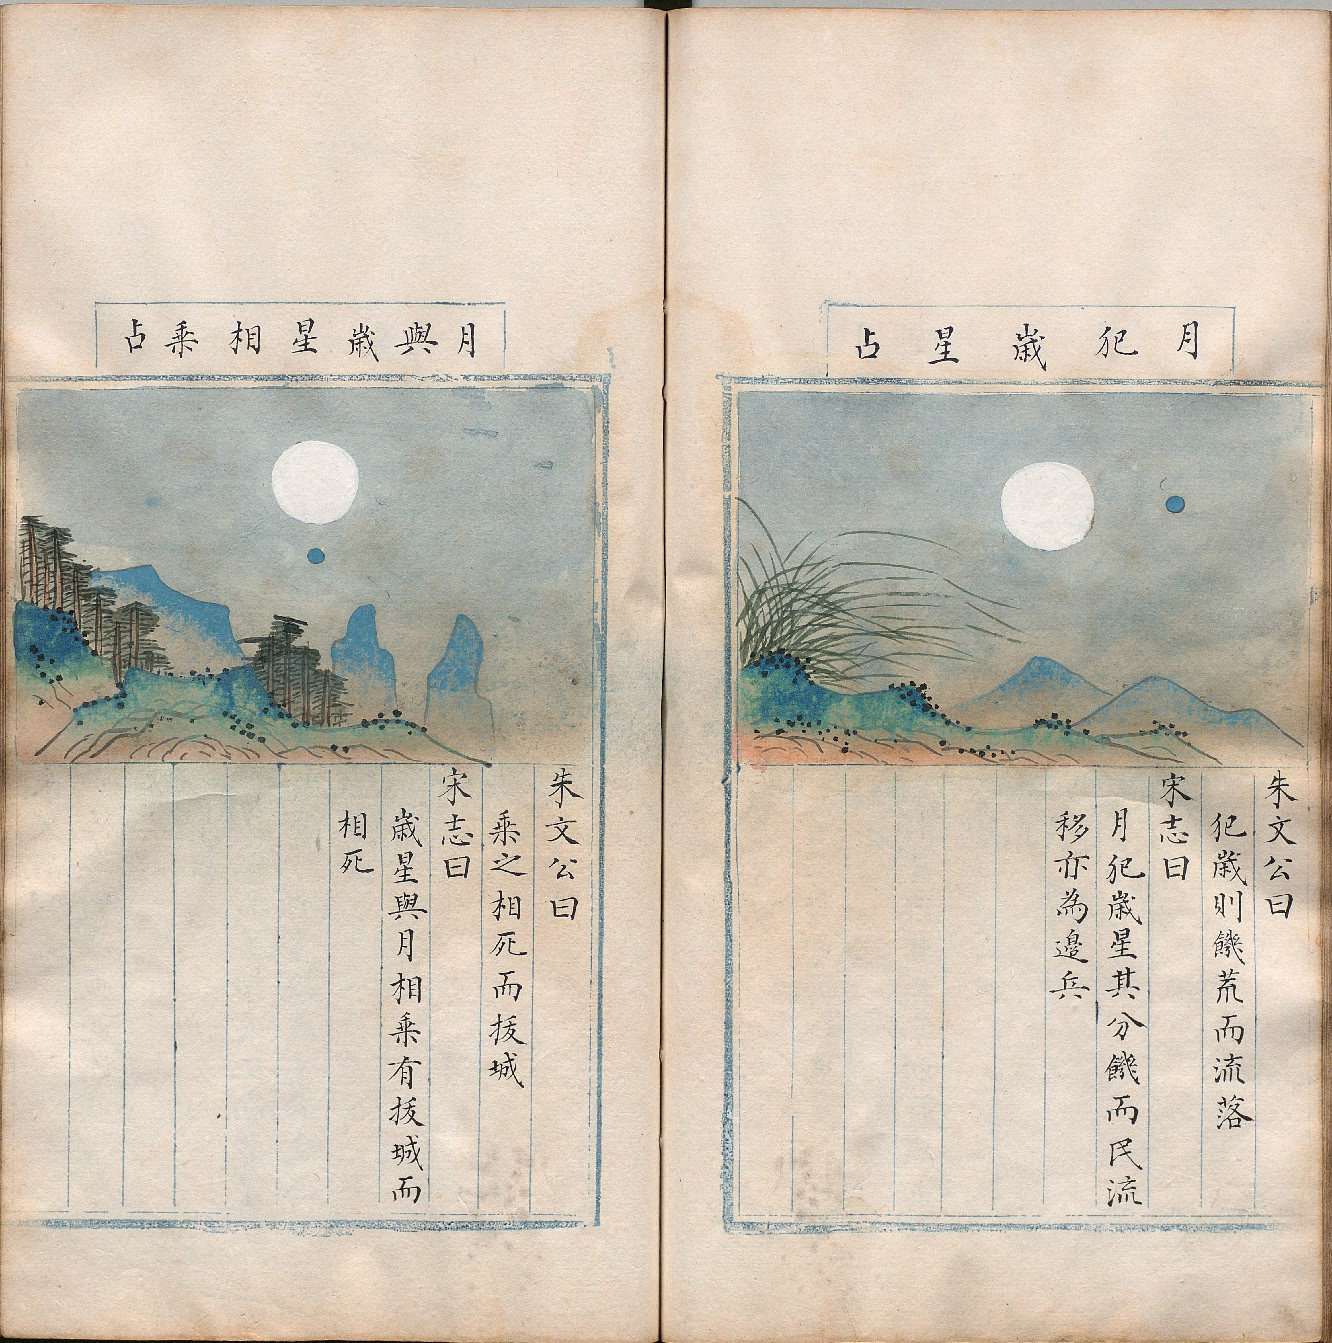 月犯歳星占
朱文公曰
犯歳則饑荒而流落
宋志曰
月犯歳星其分饑而民流
移亦為邉兵
月與歳星相乗占
朱文公曰
乗之相死而拔城
宋志曰
歳星與月相乗有拔城而
相死